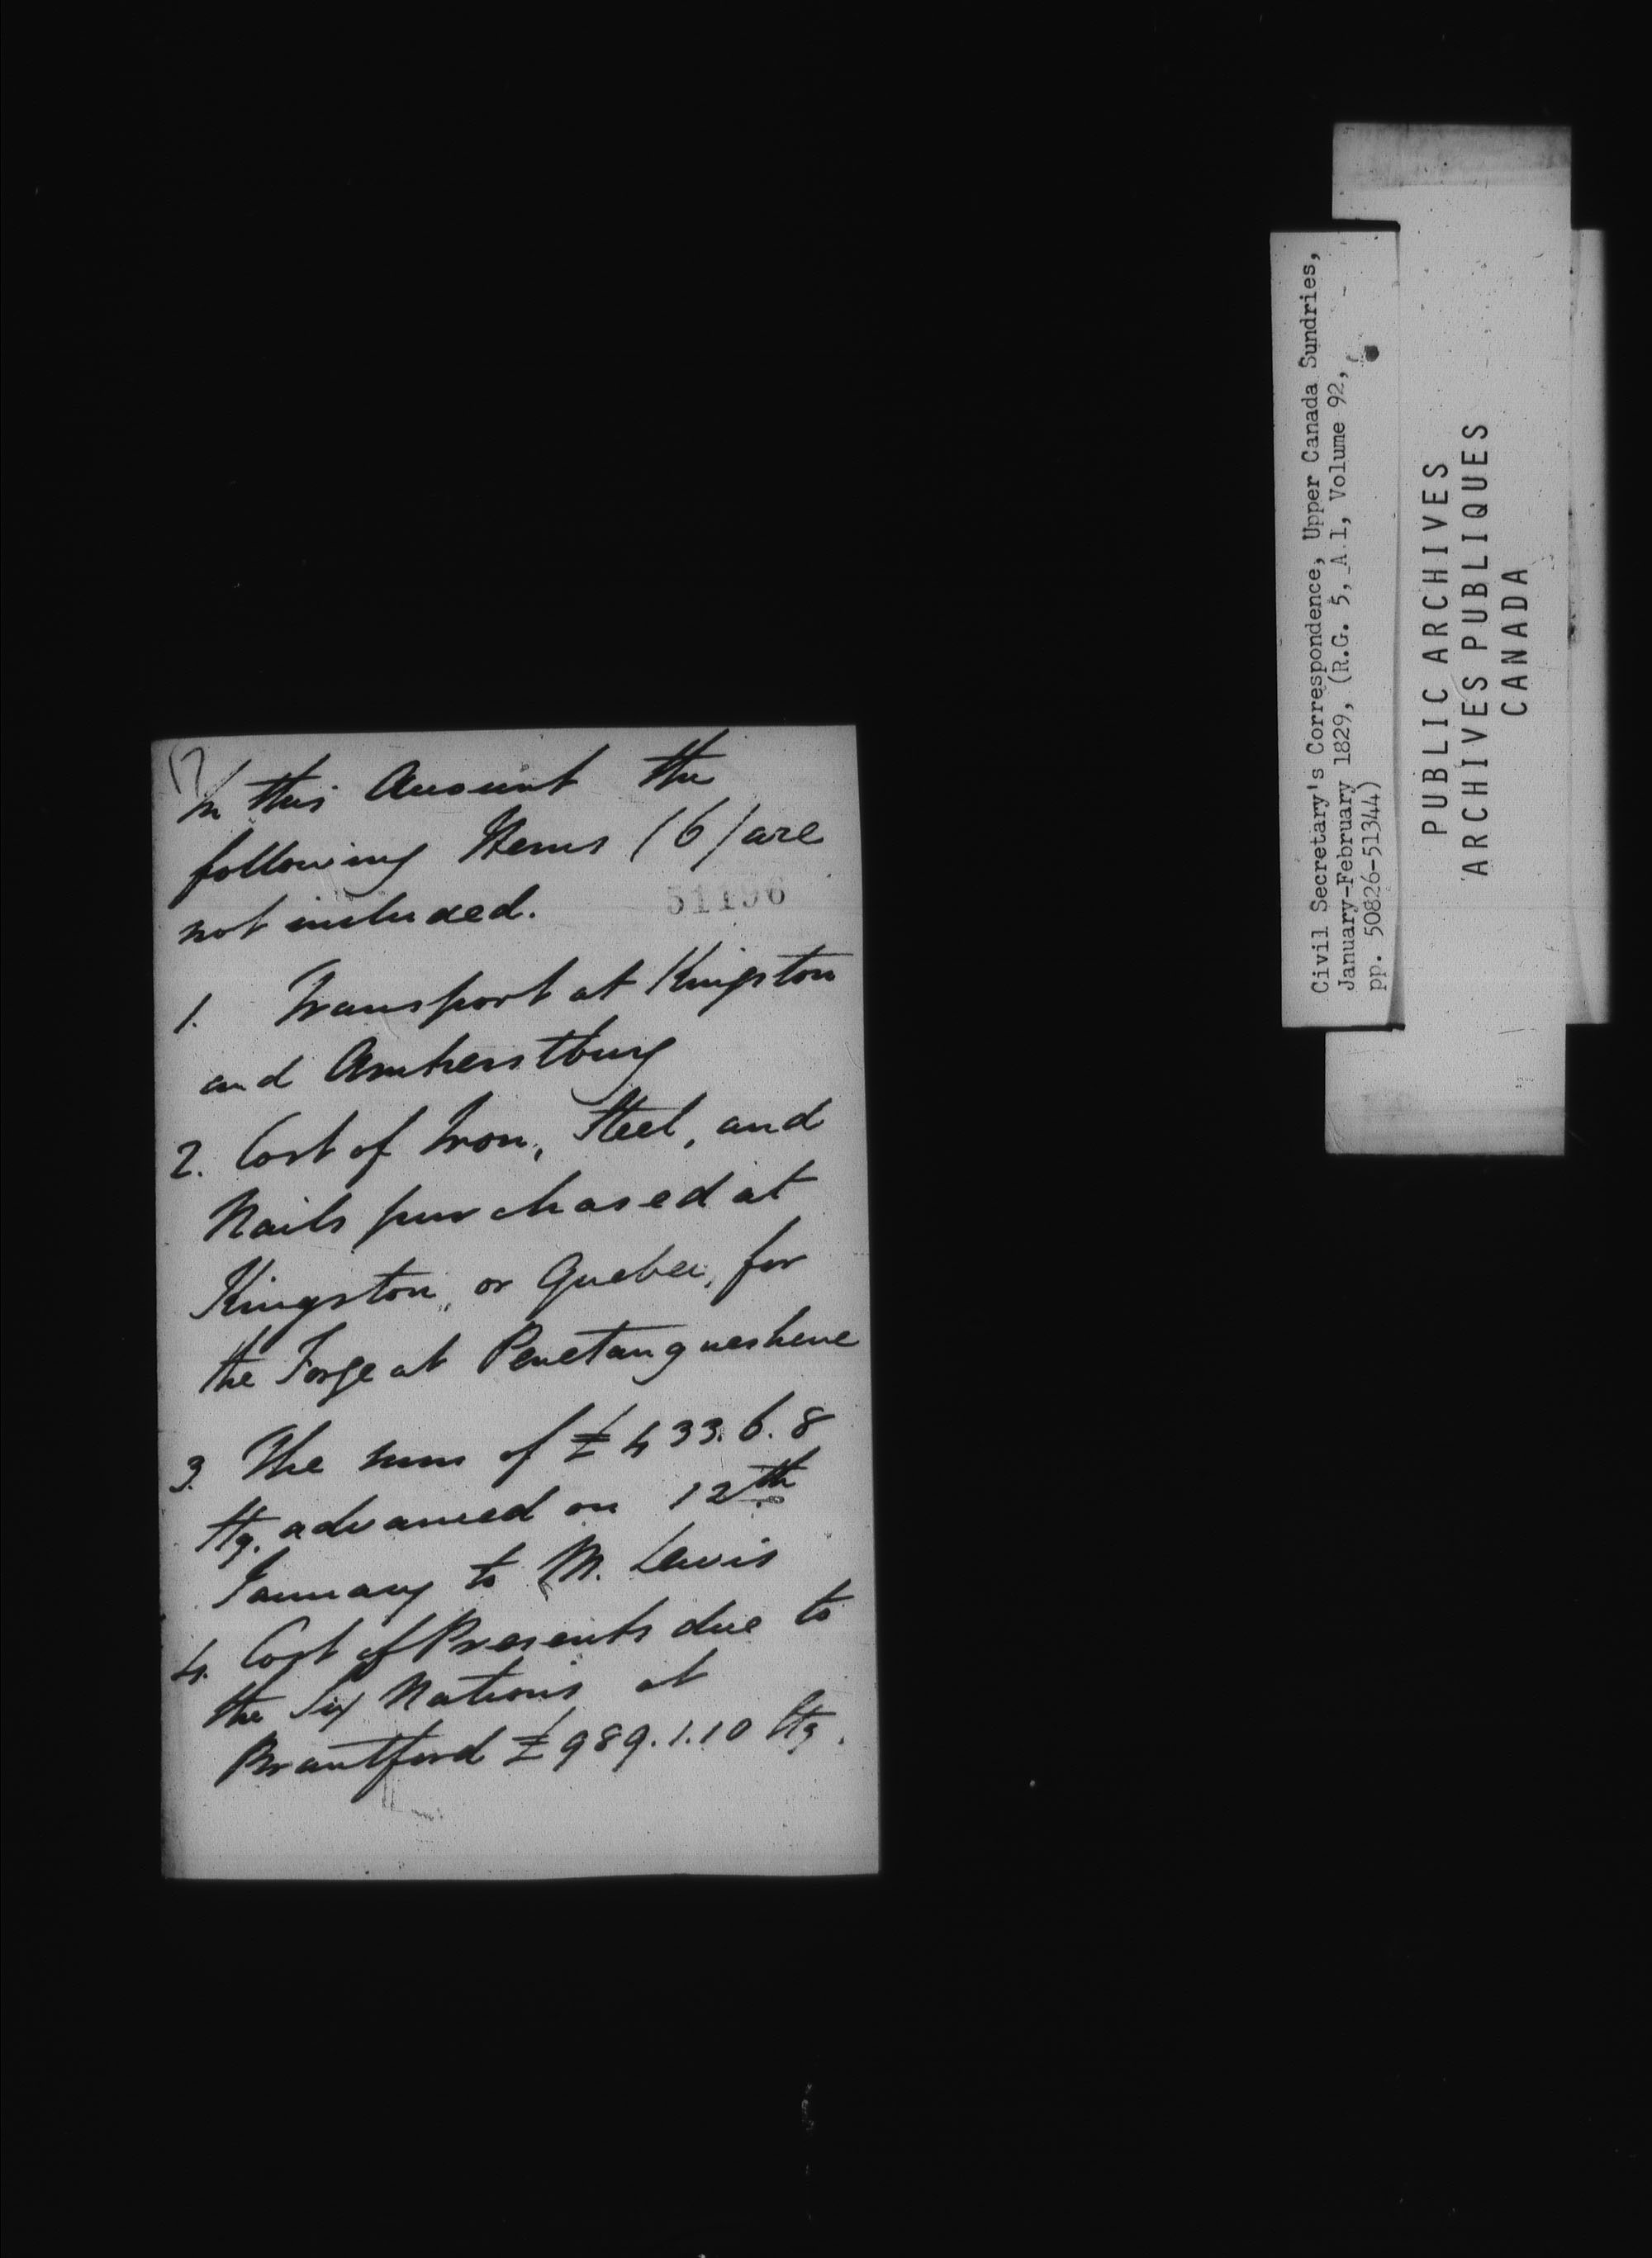 17
In this Account the
following Items (6) are
not included.
51196
1. Transport at Kingston
and Amherstburg
2. Cost of Iron, Steel, and
Nails purchased at
Kingston, or Quebec, for
the Forge at Penetangueshene
3. The sum of £433.6.8
Stg. advanced on 12th
January to M. Lewis
4. Cost of Presents due to
the Six Nations at
Brantford £989.1.10 Stg.
Civil Secretary's Correspondence, Upper Canada Sundries,
January-February 1829, (R.G. 5, A 1, Volume 92,
pp. 50826-51344)
PUBLIC ARCHIVES
ARCHIVES PUBLIQUES
CANADA